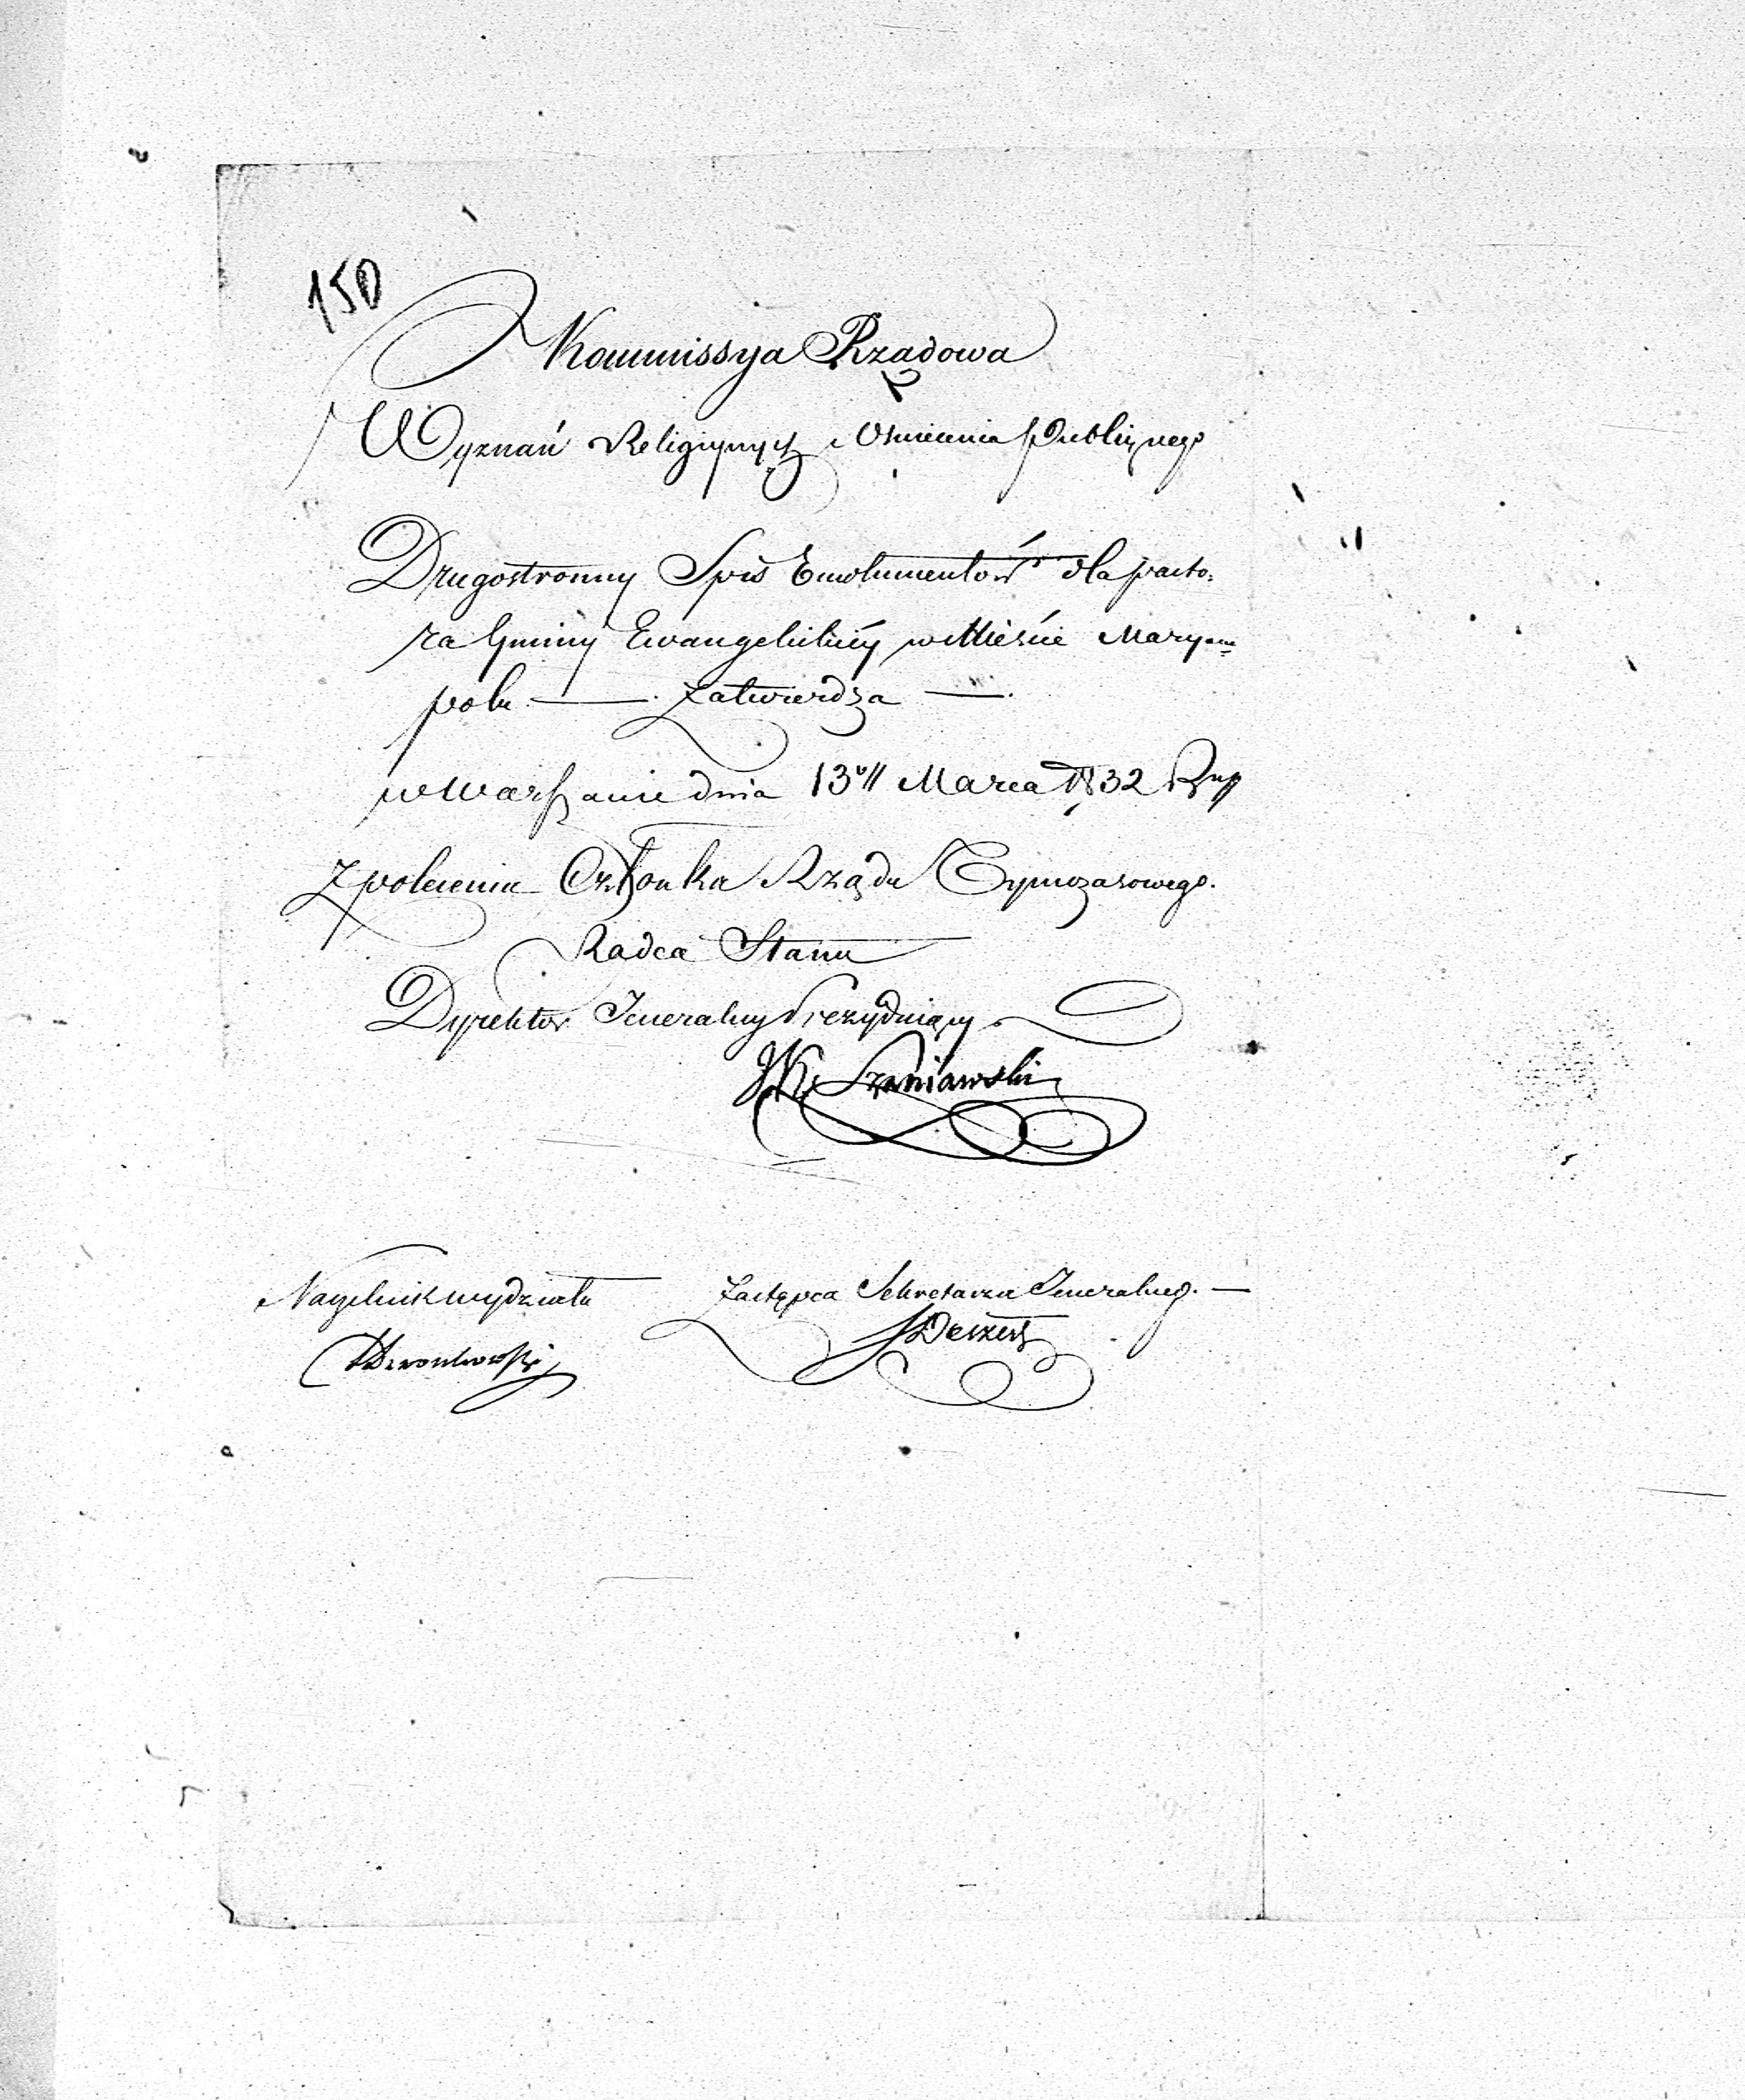 150
Kommissya Rządowa
Wyznań Religiynych i Oświecenia Publicznego
Drugostronny Spis Emolumentów dla pasto-
ra Gminy Ewangelickiéy w Mieście Maryam-
polu — Zatwierdza —
w Warszawie dnia 13 Marca 1832 R
Z polecenia Członka Rządu Tymczasowego.
Radca Stanu
Dyrektor Jeneralny Prezyduiący
JK Szaniawski
Naczelnik wydziału
Zastępca Sekretarza Jeneralnego. —